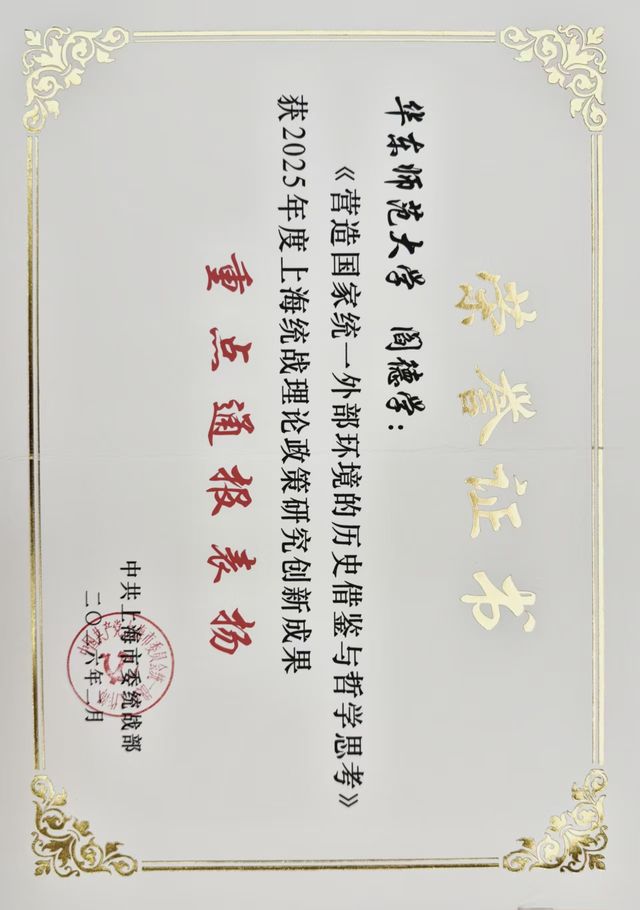 荣誉证书
华东师范大学 阎德学：
《营造国家统一外部环境的历史借鉴与哲学思考》
获2025年度上海统战理论政策研究创新成果
重点通报表扬
中共上海市委统战部
二〇二六年一月